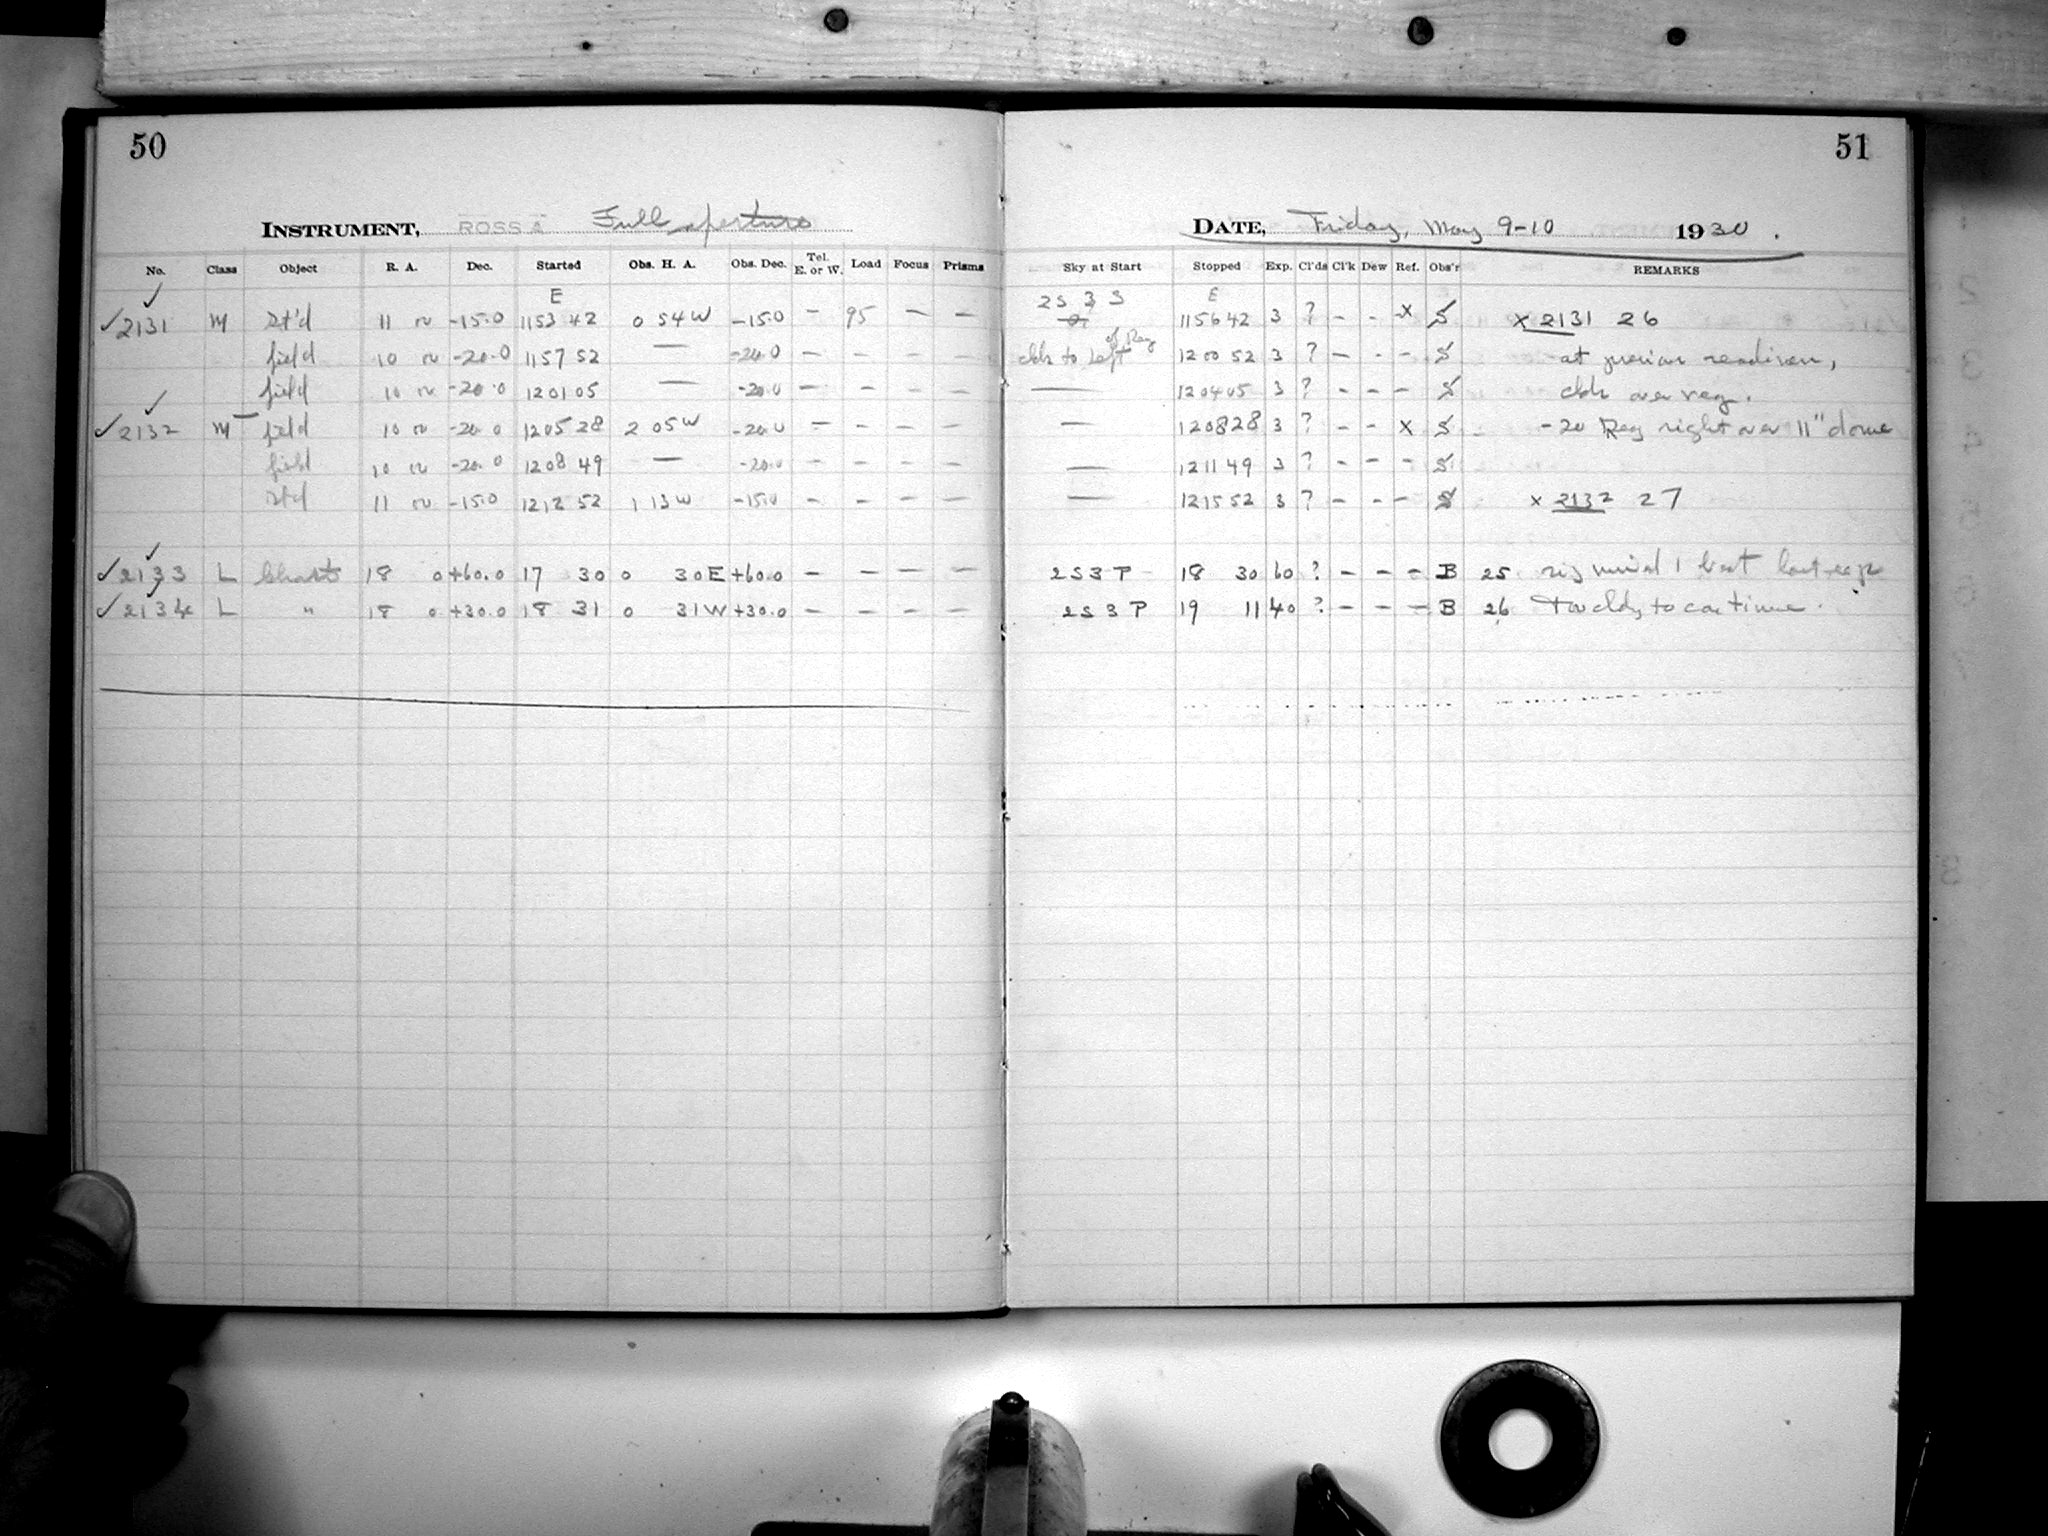 50
51
INSTRUMENT, ROSS A Full aperture
DATE, Friday, May 9-10 1930.
No. Class Object R. A. Dec. Started Obs. H. A. Obs. Dec. Tel. E. or W. Load Focus Prisms Sky at Start Stopped Exp. Cl'ds Cl'k Dew Ref. Obs'r REMARKS
E 2S 3 S E
✓ 2131 M St'd 11 -15.0 11 53 42 0 54 W -15.0 - 95 - - 11 56 42 3 ? - - x S x 2131 26
field 10 -20.0 11 57 52 — -20.0 - - - - clds to left of Reg 12 00 52 3 ? - - - S at
field 10 -20.0 12 01 05 — -20.0 - - - - — 12 04 05 3 ? - - - S clds over reg.
✓ 2132 M field 10 -20.0 12 05 28 2 05 W -20.0 - - - - — 12 08 28 3 ? - - x S -20 Reg right over 11" dome
field 10 -20.0 12 08 49 — -20.0 - - - - — 12 11 49 3 ? - - - S
std 11 -15.0 12 12 52 1 13 W -15.0 - - - - — 12 15 52 3 ? - - - S x 2132 27
✓ 2133 L 18 0 +60.0 17 30 0 30 E +60.0 - - - - 2 S 3 P 18 30 60 ? - - - B 25
✓ 2134 L " 18 0 +30.0 18 31 0 31 W +30.0 - - - - 2 S 3 P 19 11 40 ? - - - B 26 too cldy to continue.